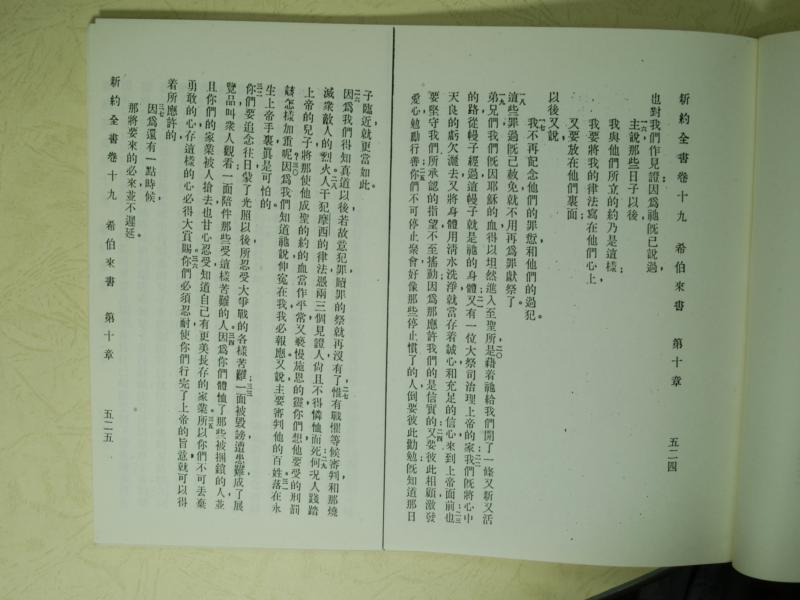 新約全書卷十九　希伯來書　第十章　五二四
也對我們作見證因爲祂旣已說過，
一六主說那些日子以後
我與他們所立的約乃是這樣；
我要將我的律法寫在他們心上
又要放在他們裏面；
以後又說
一七我不再記念他們的罪愆和他們的過犯。
一八這些罪過旣已赦免就不用再爲罪獻祭了。
一九弟兄們我們旣因耶穌的血得以坦然進入至聖所，二〇是藉着祂給我們開了一條又新又活
的路從幔子經過這幔子就是祂的身體；二一又有一位大祭司治理上帝的家；二二我們旣將心中
天良的虧欠灑去又將身體用淸水洗淨就當存着誠心和充足的信心來到上帝面前；二三也
要堅守我們所承認的指望不至搖動因爲那應許我們的是信實的；二四又要彼此相顧激發
愛心勉勵行善；二五你們不可停止聚會好像那些停止慣了的人倒要彼此勸勉旣知道那日
子臨近就更當如此。
二六因爲我們得知眞道以後若故意犯罪贖罪的祭就再沒有了；二七惟有戰懼等候審判和那燒
滅衆敵人的烈火。二八人干犯摩西的律法憑兩三個見證人尙且不得憐恤而死；二九何况人踐踏
上帝的兒子將那使他成聖的約的血當作平常又褻慢施恩的靈你們想他要受的刑罰
該怎樣加重呢？三〇因爲我們知道祂說伸寃在我我必報應又說主要審判他的百姓。三一落在永
生上帝手裏眞是可怕的。
三二你們要追念往日蒙了光照以後所忍受大爭戰的各樣苦難；三三一面被毀謗遭患難成了展
覽品叫衆人觀看一面陪伴那些受這樣苦難的人。三四因爲你們體恤了那些被捆鎖的人並
且你們的家業被人搶去也甘心忍受知道自己有更美長存的家業。三五所以你們不可丟棄
勇敢的心存這樣的心必得大賞賜。三六你們必須忍耐使你們行完了上帝的旨意就可以得
着所應許的。
三七因爲還有一點時候，
那將要來的必來並不遲延
新約全書卷十九　希伯來書　第十章　五二五